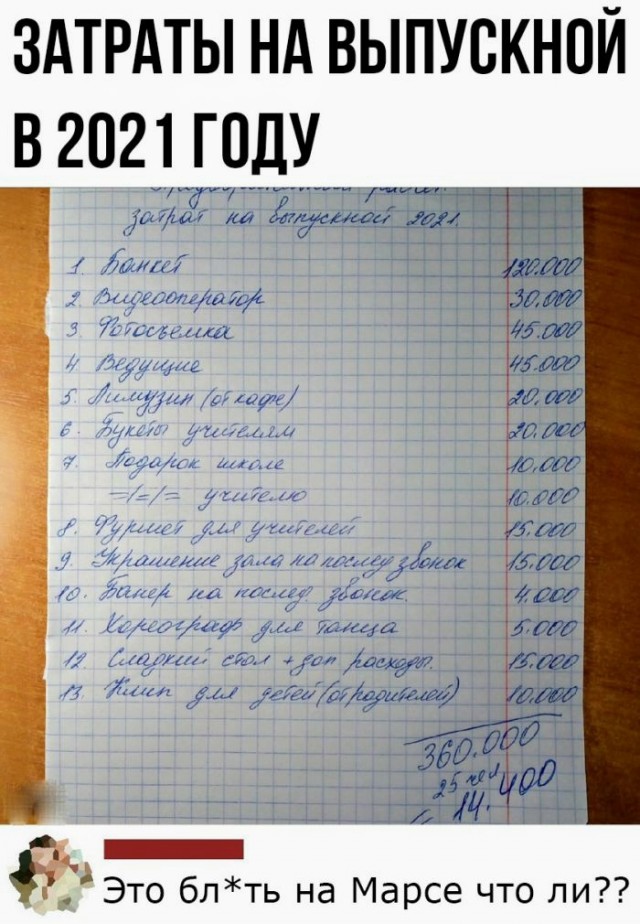 ЗАТРАТЫ НА ВЫПУСКНОЙ
В 2021 ГОДУ
затрат на выпускной 2021.
1. Банкет 120.000
2. Видеооператор 30.000
3. Фотосъемка 45.000
4. Ведущие 45.000
5. Лимузин (от кафе) 20.000
6. Букеты учителям 20.000
7. Подарок школе 10.000
=/=/= учителю 10.000
8. Фуршет для учителей 15.000
9. Украшение зала на послед звонок 15.000
10. Банер на послед звонок. 4.000
11. Хореограф для танца 5.000
12. Сладкий стол + доп расходы. 15.000
13. Клип для детей (от родителей) 10.000
360.000
25 чел
14.400
Это бл*ть на Марсе что ли??